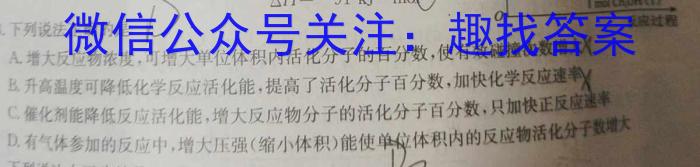 ΔH
kJ·mol
反应过程
下列说法
微信公众号关注：趣找答案
A.增大反应物浓度,可增大单位体积内活化分子的百分数,使有效碰撞次数
B.升高温度可降低化学反应活化能,提高了活化分子百分数,加快化学反应速率
C.催化剂能降低反应活化能,增大反应物分子的活化分子百分数,只加快正反应速率
D.有气体参加的反应中,增大压强(缩小体积)能使单位体积内的反应物活化分子数增大